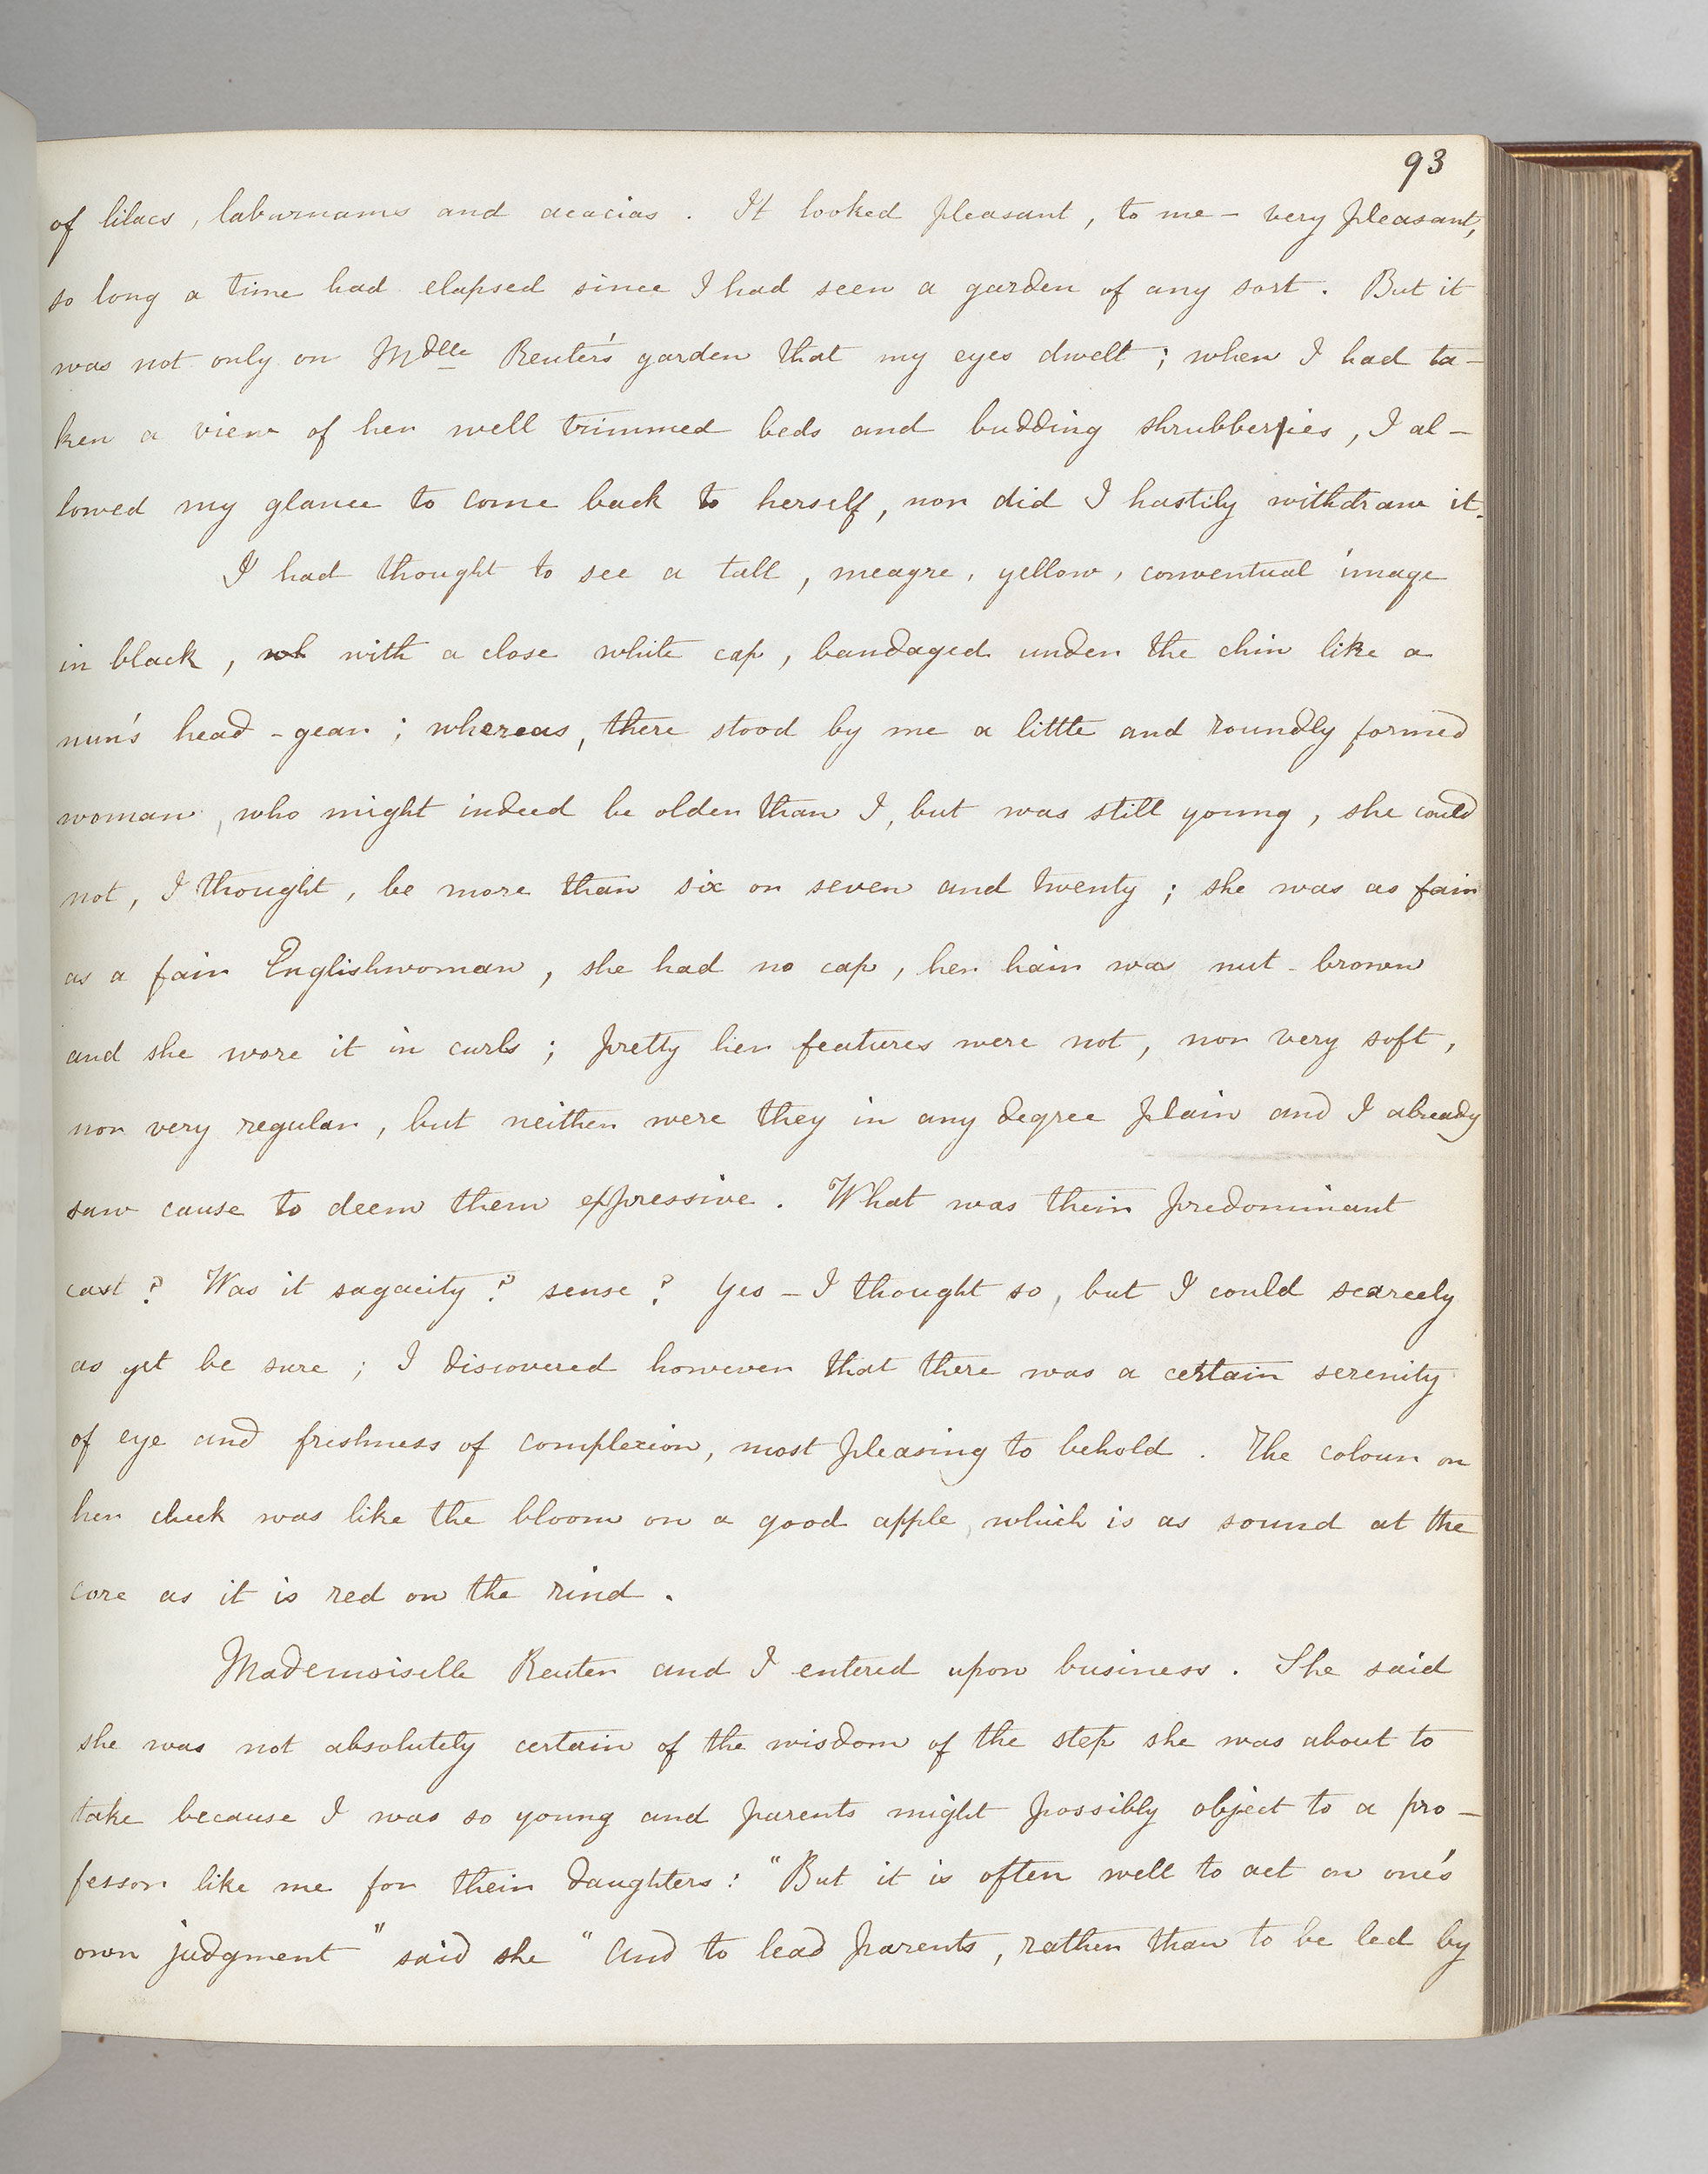 93
of lilacs, laburnams and acacias. It looked pleasant, to me – very pleasant,
so long a time had elapsed since I had seen a garden of any sort. But it
was not only on Mdlle Reuter's garden that my eyes dwelt; when I had ta-
ken a view of her well trimmed beds and budding shrubberies, I al-
lowed my glance to come back to herself, nor did I hastily withdraw it.
I had thought to see a tall, meagre, yellow, conventual image
in black, wh with a close white cap, bandaged under the chin like a
nun's head-gear; whereas, there stood by me a little and roundly formed
woman, who might indeed be older than I, but was still young, she could
not, I thought, be more than six or seven and twenty; she was as fair
as a fair Englishwoman, she had no cap, her hair was nut-brown
and she wore it in curls; pretty her features were not, nor very soft,
nor very regular, but neither were they in any degree plain and I already
saw cause to deem them expressive. What was their predominant
cast? Was it sagacity? sense? Yes – I thought so, but I could scarcely
as yet be sure; I discovered however that there was a certain serenity
of eye and freshness of complexion, most pleasing to behold. The colour on
her cheek was like the bloom on a good apple, which is as sound at the
core as it is red on the rind.
Mademoiselle Reuter and I entered upon business. She said
she was not absolutely certain of the wisdom of the step she was about to
take because I was so young and parents might possibly object to a pro-
fessor like me for their daughters: "But it is often well to act on one's
own judgment" said she "and to lead parents, rather than to be led by